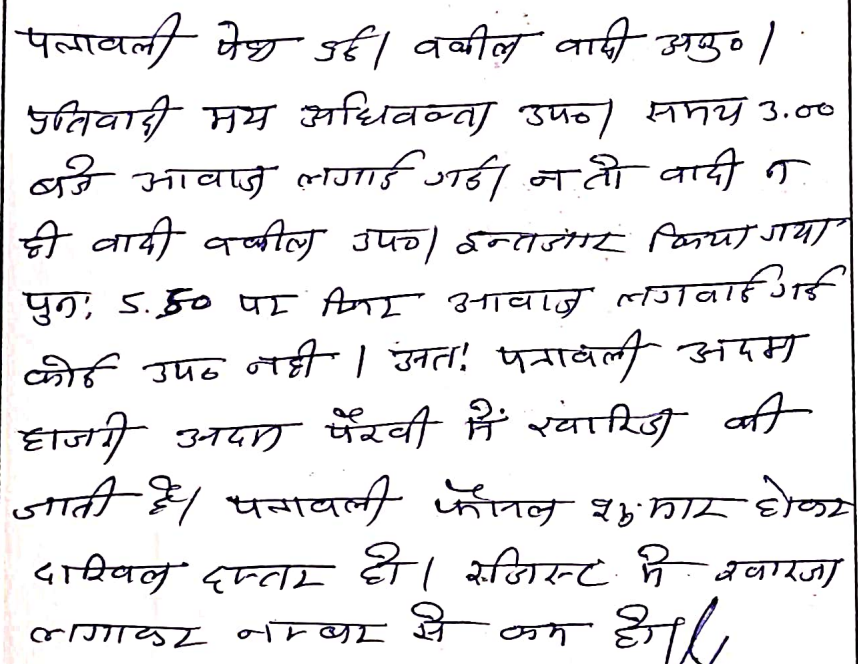 पत्रावली पेश हुई। वकील वादी अनु०।
प्रतिवादी मय अधिवक्ता उप०। समय 3.00
बजे आवाज लगाई गई। न तो वादी न
ही वादी वकील उप०। इन्तजार किया गया
पुन: 5.50 पर फिर आवाज लगवाई गई
कोई उप० नही। अत: पत्रावली अदम
हाजरी अदम पैरवी में खारिज की
जाती है। पत्रावली फैसल शुमार होकर
दाखिल दफ्तर हो। रजिस्ट मे खारजा
लगाकर नम्बर से कम हो।